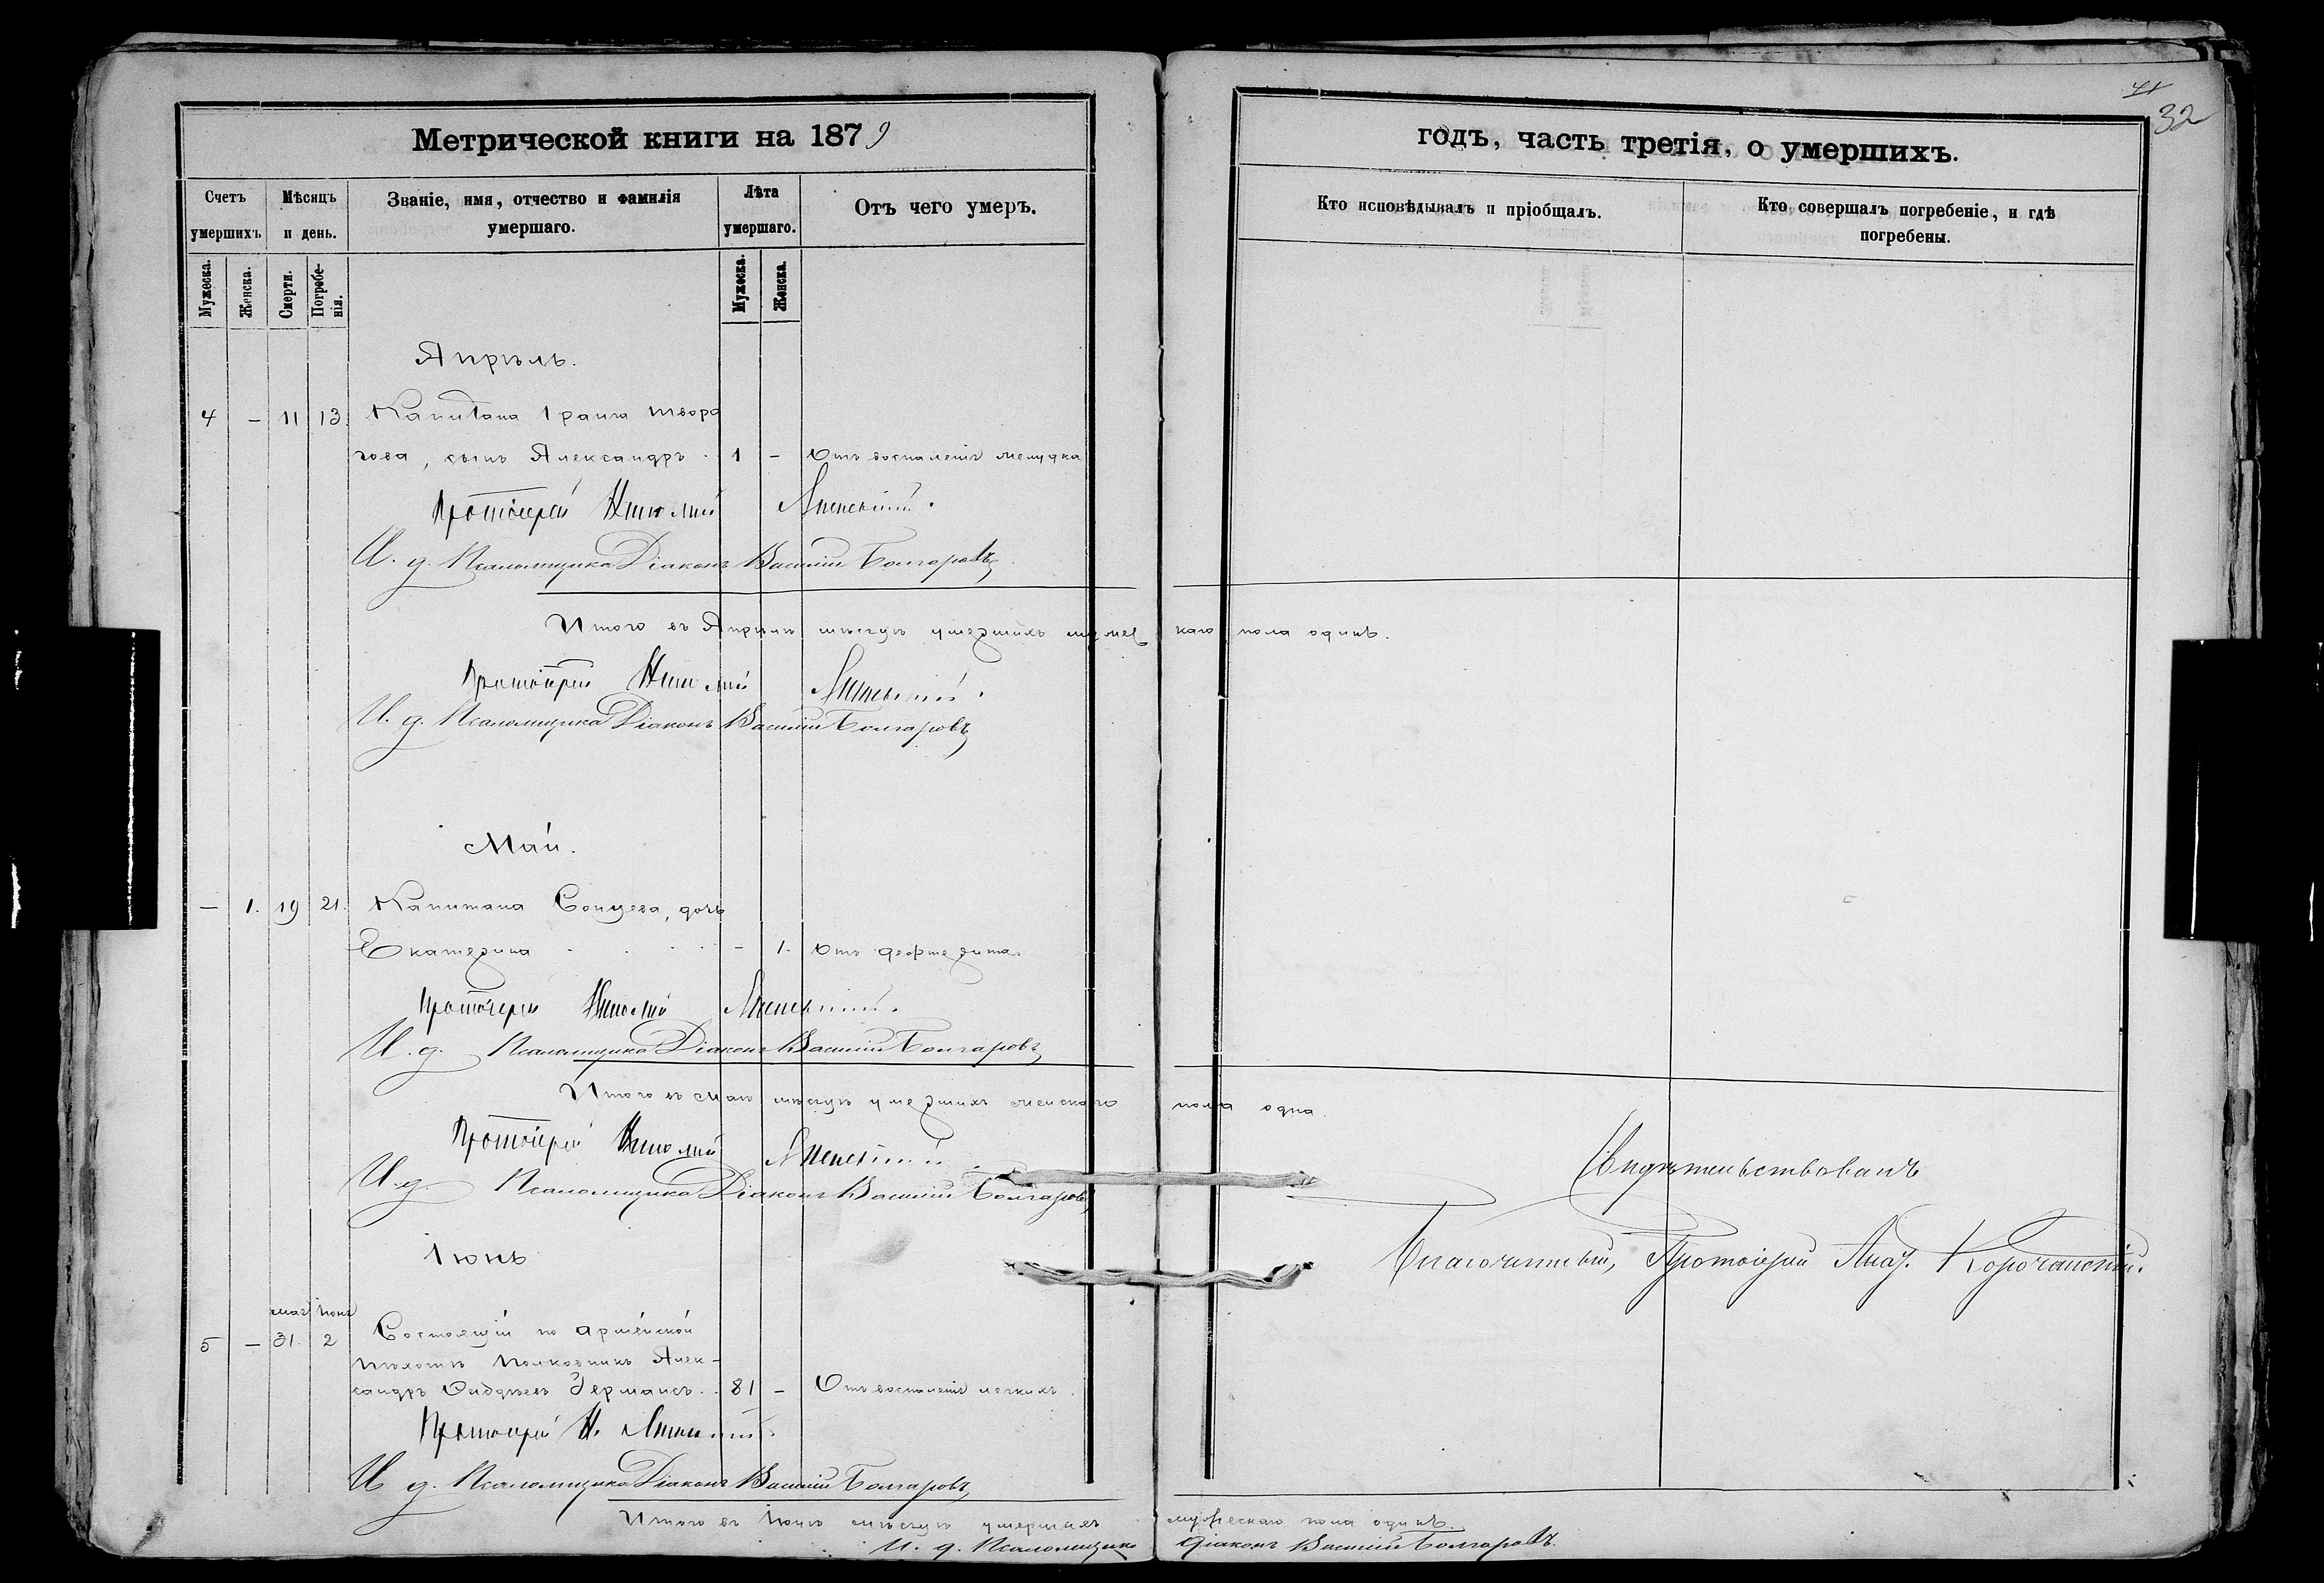 Метрической книги на 1879
Счетъ умершихъ.
Мѣсяцъ и день.
Званіе, имя, отчество и фамилія умершаго.
Лѣта умершаго.
Отъ чего умеръ.
Мужеска.
Женска.
Смерти.
Погребенія.
Мужеска.
Женска.
Апрѣль.
4 – 11 13. Капитана 1 ранга Творо
гова, сынъ Александръ . 1 – Отъ воспаленія желудка
Протоіерей Николай
И. д. Псаломщика Діаконъ Василій Болгаровъ
Итого въ Апрѣлѣ мѣсяцѣ умершихъ мужес
Протоіерей Николай
И. д. Псаломщика Діаконъ Василій Болгаровъ
Май.
– 1. 19 21. Капитана Сонцева, дочь
Екатерина – 1. Отъ дефтерита.
Протоіерей Николай
И. д. Псаломщика Діаконъ Василій Болгаровъ
Итого въ Маѣ мѣсяцѣ умершихъ женскаго
Протоіерей Николай
И. д. Псаломщика Діаконъ Василій Болгаровъ
Іюнь
мая Іюня
5 – 31. 2 Состоящій по армейской
пѣхотѣ Полковникъ Алек-
сандръ Германсъ . 81 – Отъ воспаленія легкихъ.
Протоіерей Н.
И. д. Псаломщика Діаконъ Василій Болгаровъ
Итого въ Іюнѣ мѣсяцѣ умершихъ
И. д. Псаломщика
41
32
годъ, часть третія, о умершихъ.
Кто исповѣдывалъ и пріобщалъ.
Кто совершалъ погребеніе, и гдѣ погребены.
каго пола одинъ.
пола одна.
Свидѣтельствовалъ
Благочинный, Протоіерей Корочанскій.
мужескаго пола одинъ.
Діаконъ Василій Болгаровъ.